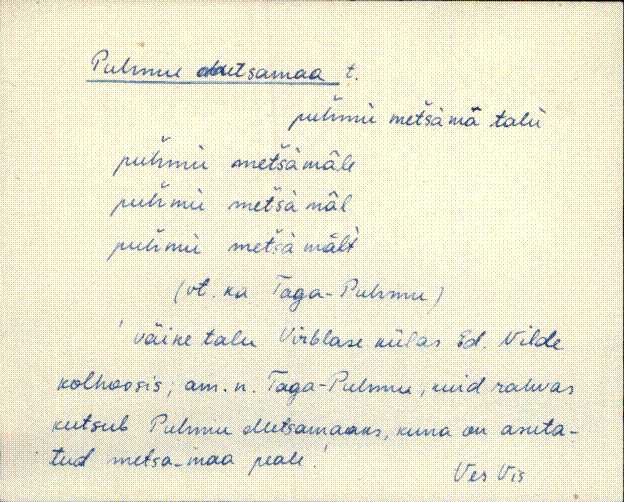 Puhmu Metsamaa t.
puh̆mù metšàmā̀ talù
puh̆mù metšàmāle
puh̆mù metšàmāl
puh̆mù metšàmālt
(vt. ka Taga-Puhmu)
' väike talu Virblase külas Ed. Vilde
kolhoosis; am. n. Taga-Puhmu, kuid rahvas
kutsub Puhmu Metsamaaks, kuna on asuta-
tud metsa-maa peale.'
Ves Vis